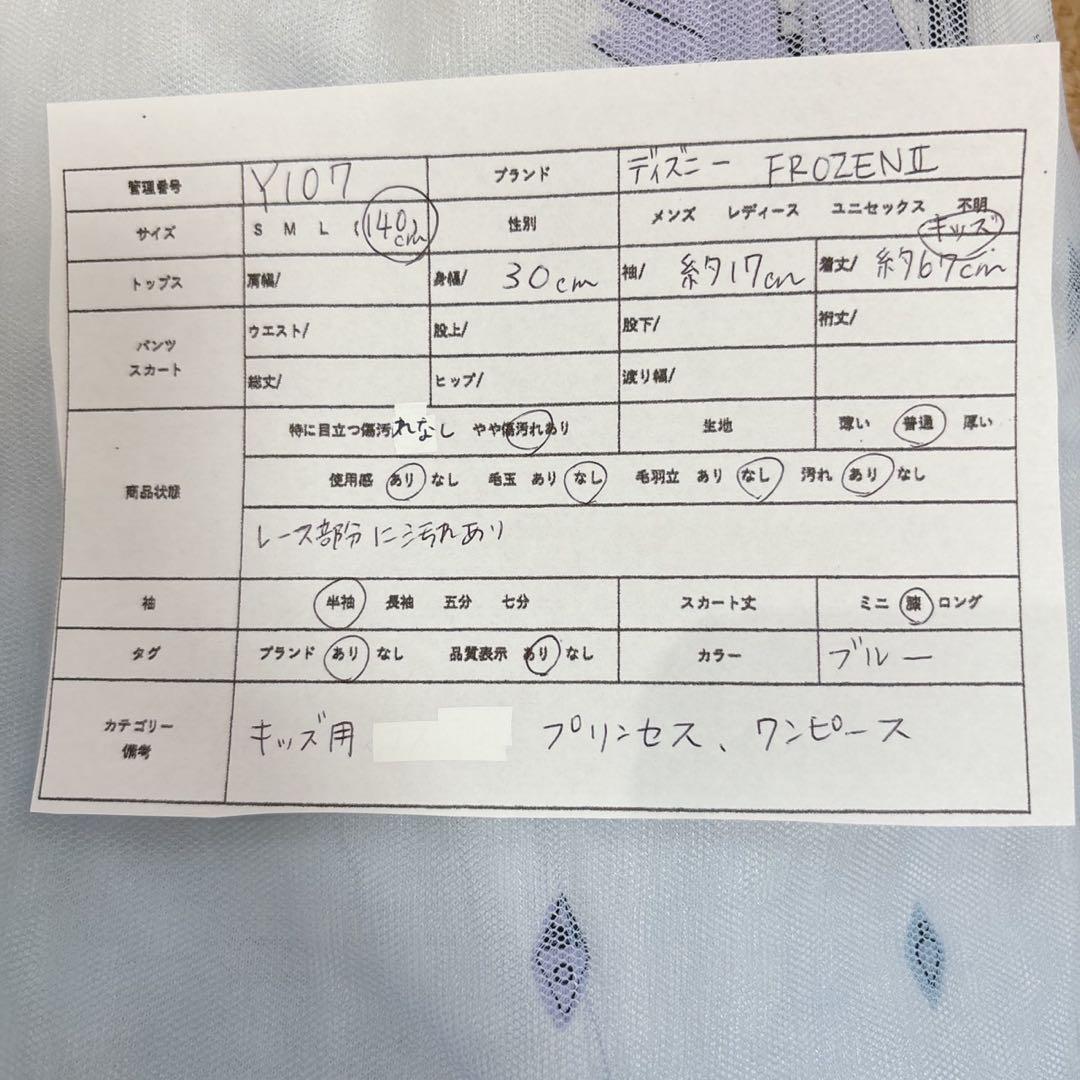 管理番号 Y107 ブランド ディズニー FROZENⅡ
サイズ S M L ( 140cm ) 性別 メンズ レディース ユニセックス 不明 キッズ
トップス 肩幅/ 身幅/ 30cm 袖/ 約17cm 着丈/ 約67cm
パンツ スカート ウエスト/ 股上/ 股下/ 裄丈/
総丈/ ヒップ/ 渡り幅/
商品状態 特に目立つ傷汚れなし やや傷汚れあり 生地 薄い 普通 厚い
使用感 あり なし 毛玉 あり なし 毛羽立 あり なし 汚れ あり なし
レース部分に汚れあり
袖 半袖 長袖 五分 七分 スカート丈 ミニ 膝 ロング
タグ ブランド あり なし 品質表示 あり なし カラー ブルー
カテゴリー 備考 キッズ用 プリンセス、ワンピース